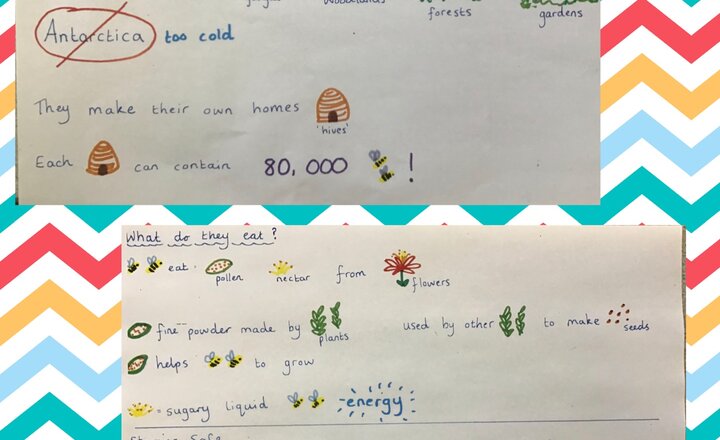 woodlands
forests
gardens
Antarctica too cold
They make their own homes
'hives'
Each can contain 80,000 !
What do they eat?
eat pollen nectar from flowers
fine powder made by plants used by other to make seeds
helps to grow
= sugary liquid energy